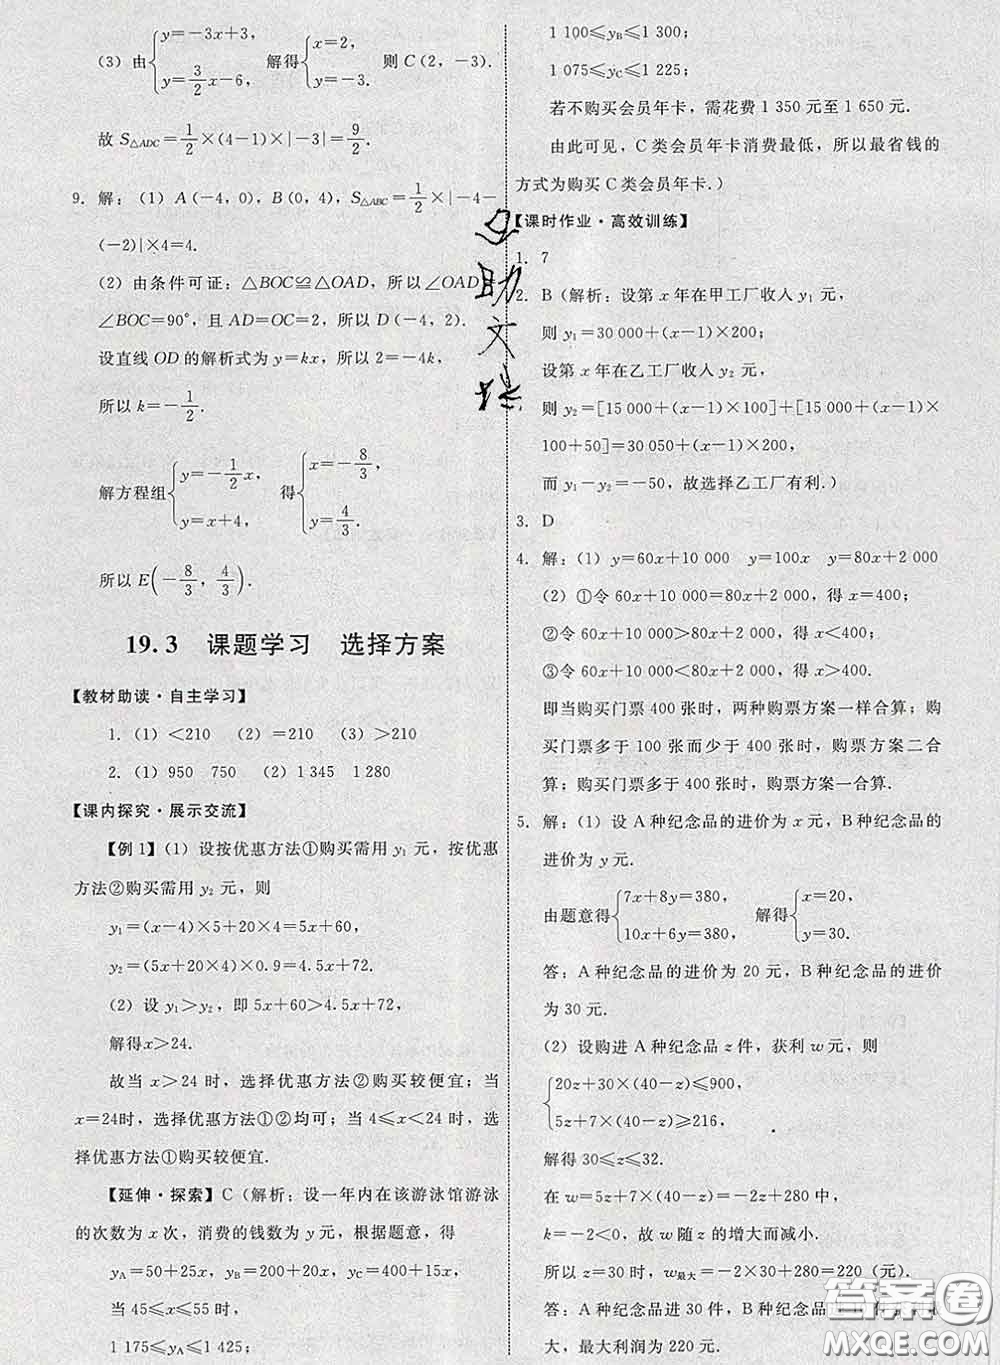 (3) 由{y=-3x+3, y=3/2x-6, 解得{x=2, y=-3. 则 C(2,-3).
故 S△ADC=1/2×(4-1)×|-3|=9/2.
9. 解:(1) A(-4,0),B(0,4),S△ABC=1/2×|-4-
(-2)|×4=4.
(2) 由条件可证:△BOC≌△OAD,所以∠OAD=
∠BOC=90°,且 AD=OC=2,所以 D(-4,2).
设直线 OD 的解析式为 y=kx,所以 2=-4k,
所以 k=-1/2.
解方程组{y=-1/2x, y=x+4, 得{x=-8/3, y=4/3.
所以 E(-8/3, 4/3).
19.3 课题学习 选择方案
【教材助读·自主学习】
1. (1) <210 (2) =210 (3) >210
2. (1) 950 750 (2) 1 345 1 280
【课内探究·展示交流】
【例 1】(1) 设按优惠方法①购买需用 y₁ 元,按优惠
方法②购买需用 y₂ 元,则
y₁=(x-4)×5+20×4=5x+60,
y₂=(5x+20×4)×0.9=4.5x+72.
(2) 设 y₁>y₂,即 5x+60>4.5x+72,
解得x>24.
故当 x>24 时,选择优惠方法②购买较便宜;当
x=24时,选择优惠方法①②均可;当 4≤x<24 时,选
择优惠方法①购买较便宜.
【延伸·探索】C (解析:设一年内在该游泳馆游泳
的次数为 x 次,消费的钱数为 y 元,根据题意,得
yA=50+25x,yB=200+20x,yC=400+15x,
当 45≤x≤55 时,
1 175≤yA≤1 425;
1 100≤yB≤1 300;
1 075≤yC≤1 225;
若不购买会员年卡,需花费 1 350 元至 1 650 元.
由此可见,C 类会员年卡消费最低,所以最省钱的
方式为购买 C 类会员年卡.)
【课时作业·高效训练】
1. 7
2. B (解析:设第 x 年在甲工厂收入 y₁ 元,
则 y₁=30 000+(x-1)×200;
设第 x 年在乙工厂收入 y₂ 元,
则 y₂=[15 000+(x-1)×100]+[15 000+(x-1)×
100+50]=30 050+(x-1)×200,
而 y₁-y₂=-50,故选择乙工厂有利.)
3. D
4. 解:(1) y=60x+10 000 y=100x y=80x+2 000
(2) ①令 60x+10 000=80x+2 000,得 x=400;
②令 60x+10 000>80x+2 000,得 x<400;
③令 60x+10 000<80x+2 000,得 x>400.
即当购买门票 400 张时,两种购票方案一样合算;购
买门票多于 100 张而少于 400 张时,购票方案二合
算;购买门票多于 400 张时,购票方案一合算.
5. 解:(1) 设 A 种纪念品的进价为 x 元,B 种纪念品的
进价为 y 元.
由题意得{7x+8y=380, 10x+6y=380, 解得{x=20, y=30.
答:A 种纪念品的进价为 20 元,B 种纪念品的进价
为 30 元.
(2) 设购进 A 种纪念品 z 件,获利 w 元,则
{20z+30×(40-z)≤900,
5z+7×(40-z)≥216,
解得 30≤z≤32.
在 w=5z+7×(40-z)=-2z+280 中,
k=-2<0,故 w 随 z 的增大而减小.
所以 z=30 时,w最大=-2×30+280=220 (元).
答:A 种纪念品进 30 件,B 种纪念品
大,最大利润为 220 元.
答案圈
MXQE.COM